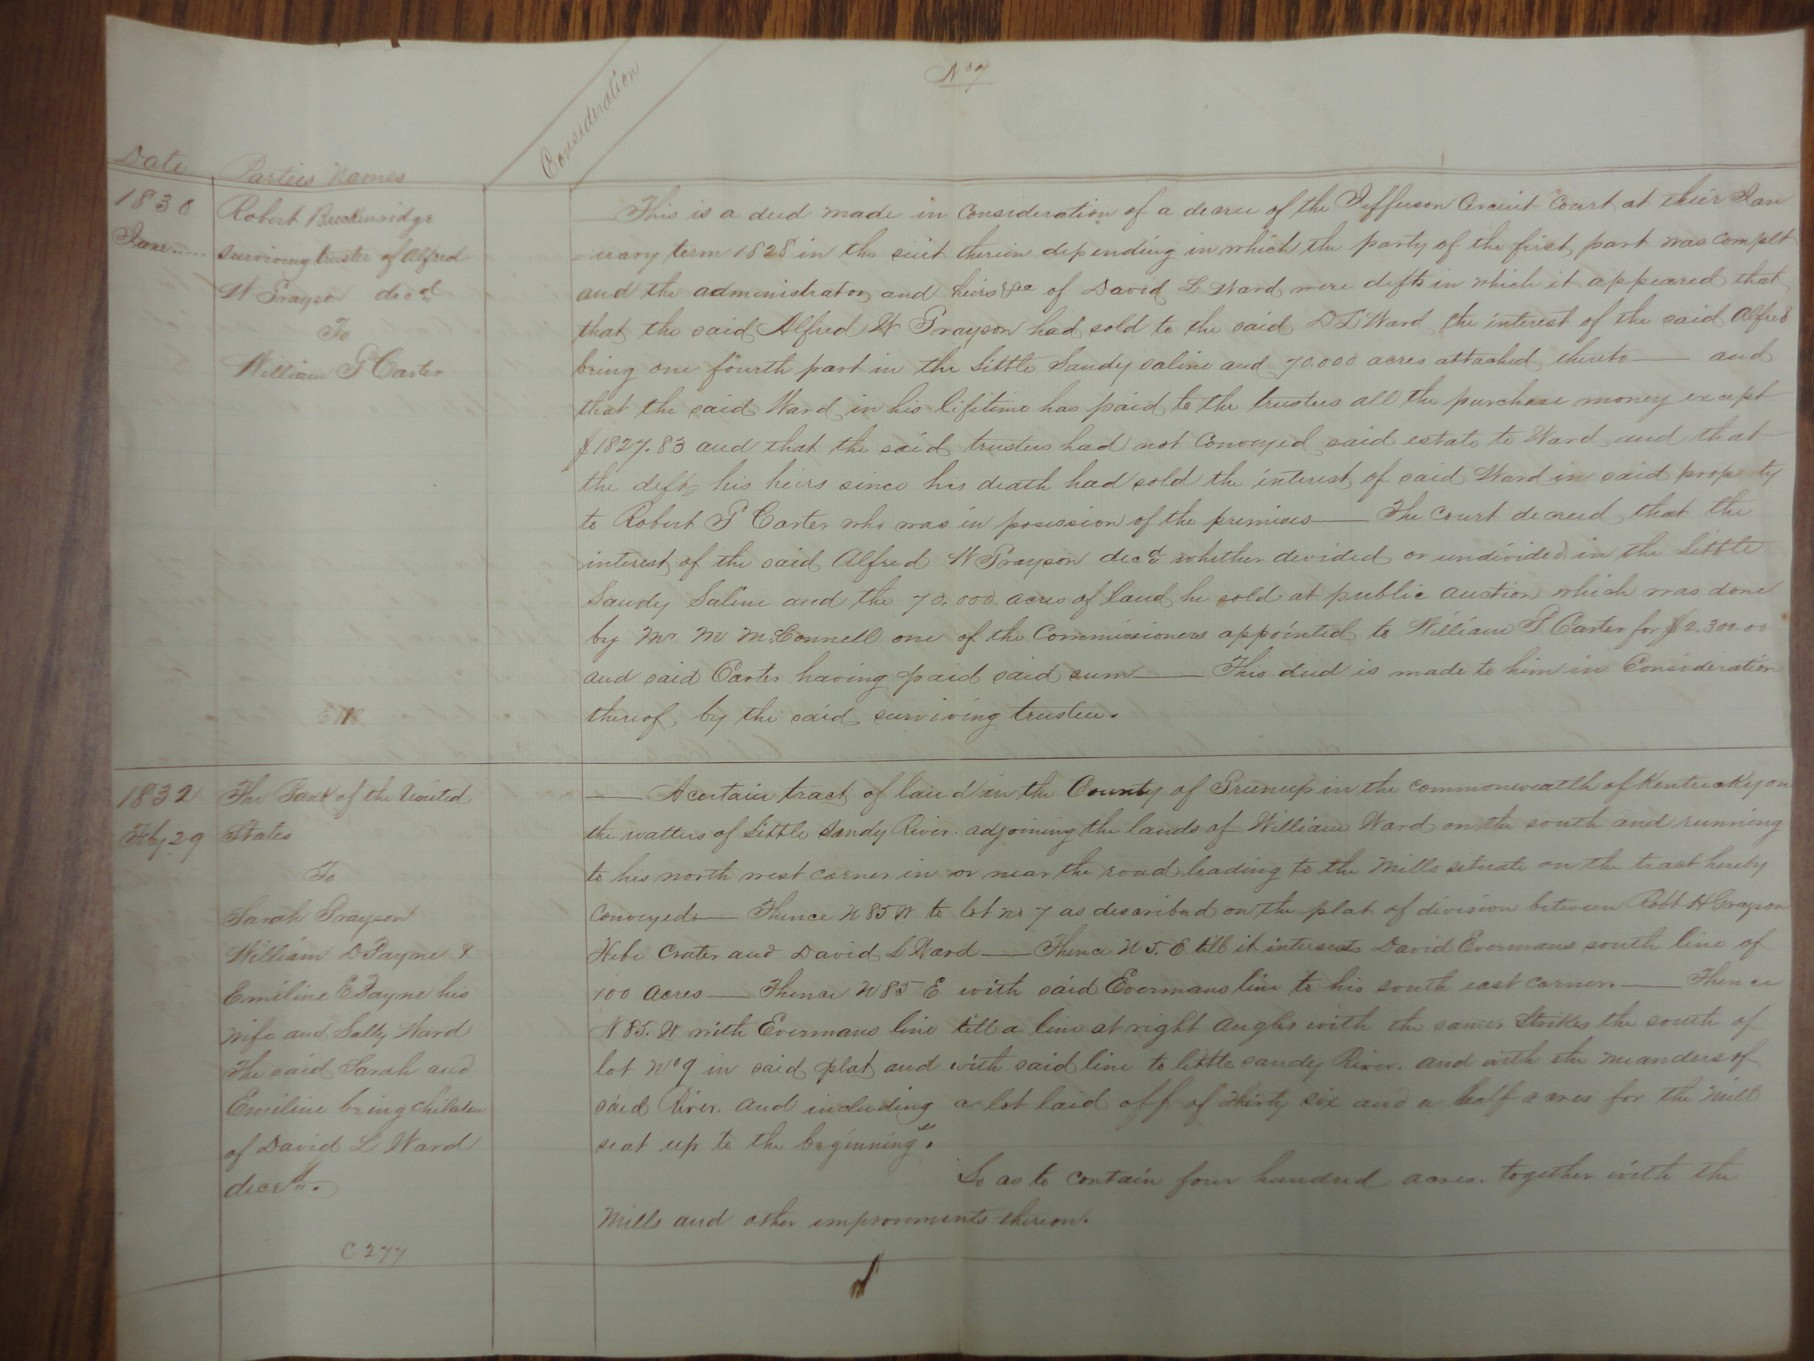 No 7
Consideration
Date
Parties Names
1830
June
Robert Breckenridge
surviving trustee of Alfred
W Grayson decd
To
William G Carter
This is a deed made in consideration of a decree of the Jefferson Circuit Court at their Jan
uary term 1828 in the suit therein depending in which the party of the first part was complt
and the administrators and heirs &c of David L Ward were defts in which it appeared that
that the said Alfred W Grayson had sold to the said D L Ward the interest of the said Alfred
being one fourth part in the Little Sandy saline and 70.000 acres attached thereto — and
that the said Ward in his lifetime has paid to the trustees all the purchase money except
$1827.83 and that the said trustees had not conveyed said estate to Ward and that
the defts his heirs since his death had sold the interest of said Ward in said property
to Robert G Carter who was in posession of the premises — The Court decreed that the
interest of the said Alfred W Grayson decd whether divided or undivided in the Little
Sandy Saline and the 70.000 acres of Land be sold at public auction which was done
by Mr M McConnell one of the Commissioners appointed to William G Carter for $2.300.00
and said Carter having paid said sum — This deed is made to him in Consideration
thereof by the said surviving trustee.
1832
Feby 29
The Bank of the United
States
To
Sarah Grayson
William D Payne &
Emiline E Payne his
wife and Sally Ward
The said Sarah and
Emiline being children
of David L Ward
decsd.
C 277
— A certain tract of land in the County of Greenup in the commonwealth of Kentucky on
the watters of Little Sandy River adjoining the lands of William Ward on the south and running
to his north west corner in or near the road leading to the Mills situate on the tract hereby
Conveyed — Thence N 85 W to lot no 7 as described on the plat of division between Robt H Grayson
Hebe Crater and David L Ward — Thence N 5. E till it intersects David Evermans south line of
100 acres — Thence N 85 E with said Evermans line to his south east corner. — Thence
N 85. W with Evermans line till a line at right angles with the same Strikes the south of
lot No 9 in said plat and with said line to little sandy River. and with the meanders of
said River. and including a lot laid off of thirty six and a half acres for the Mill
seat up to the beginning".
So as to contain four hundred acres. together with the
Mills and other improvments thereon.